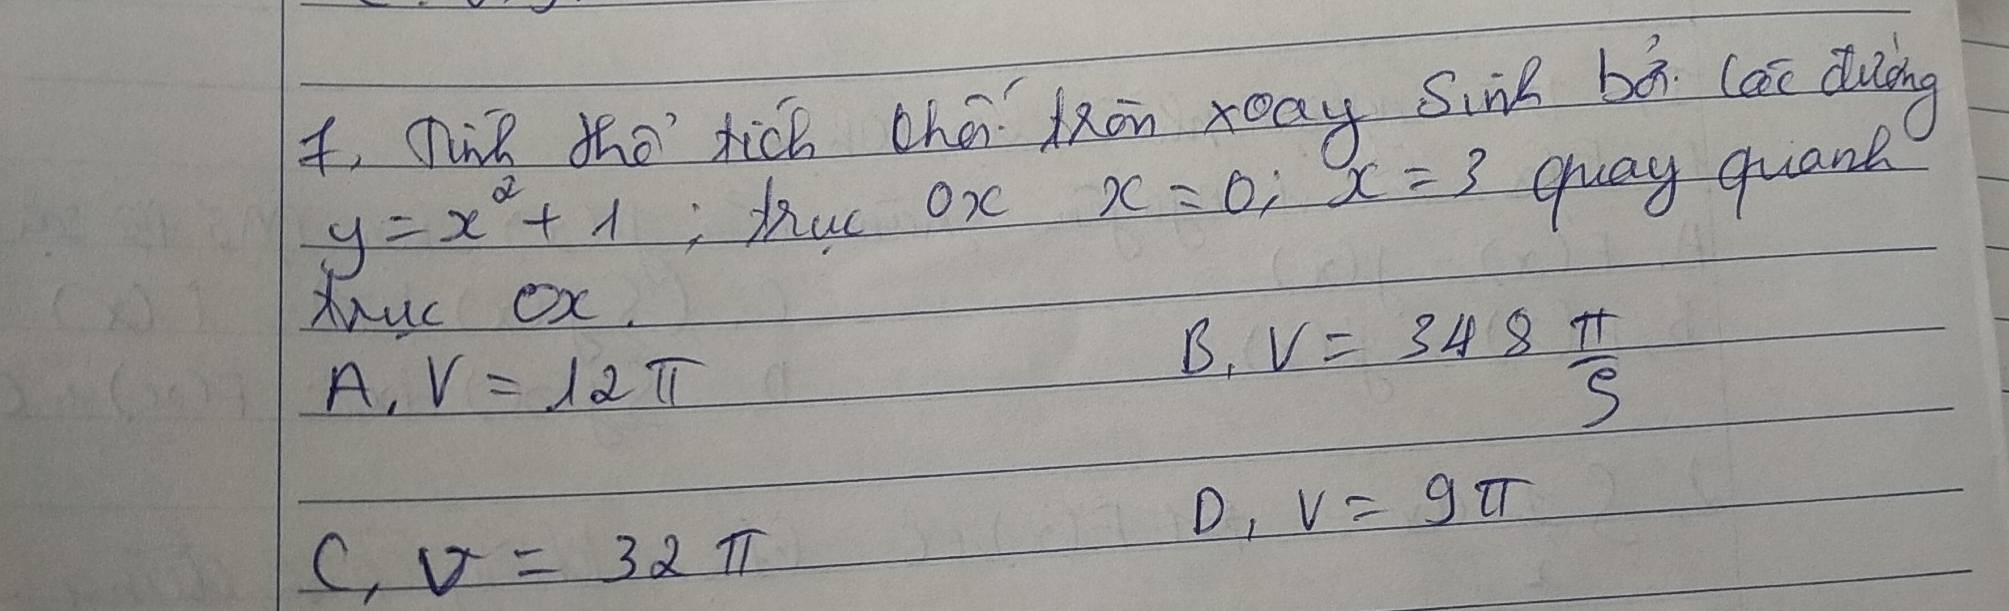 7, Tính thể tích khối tròn xoay sinh bởi các đường
y = x² + 1 ; trục Ox x = 0; x = 3 quay quanh
trục Ox.
A, V = 12π
B, V = 348 π/5
C, V = 32π
D, V = 9π